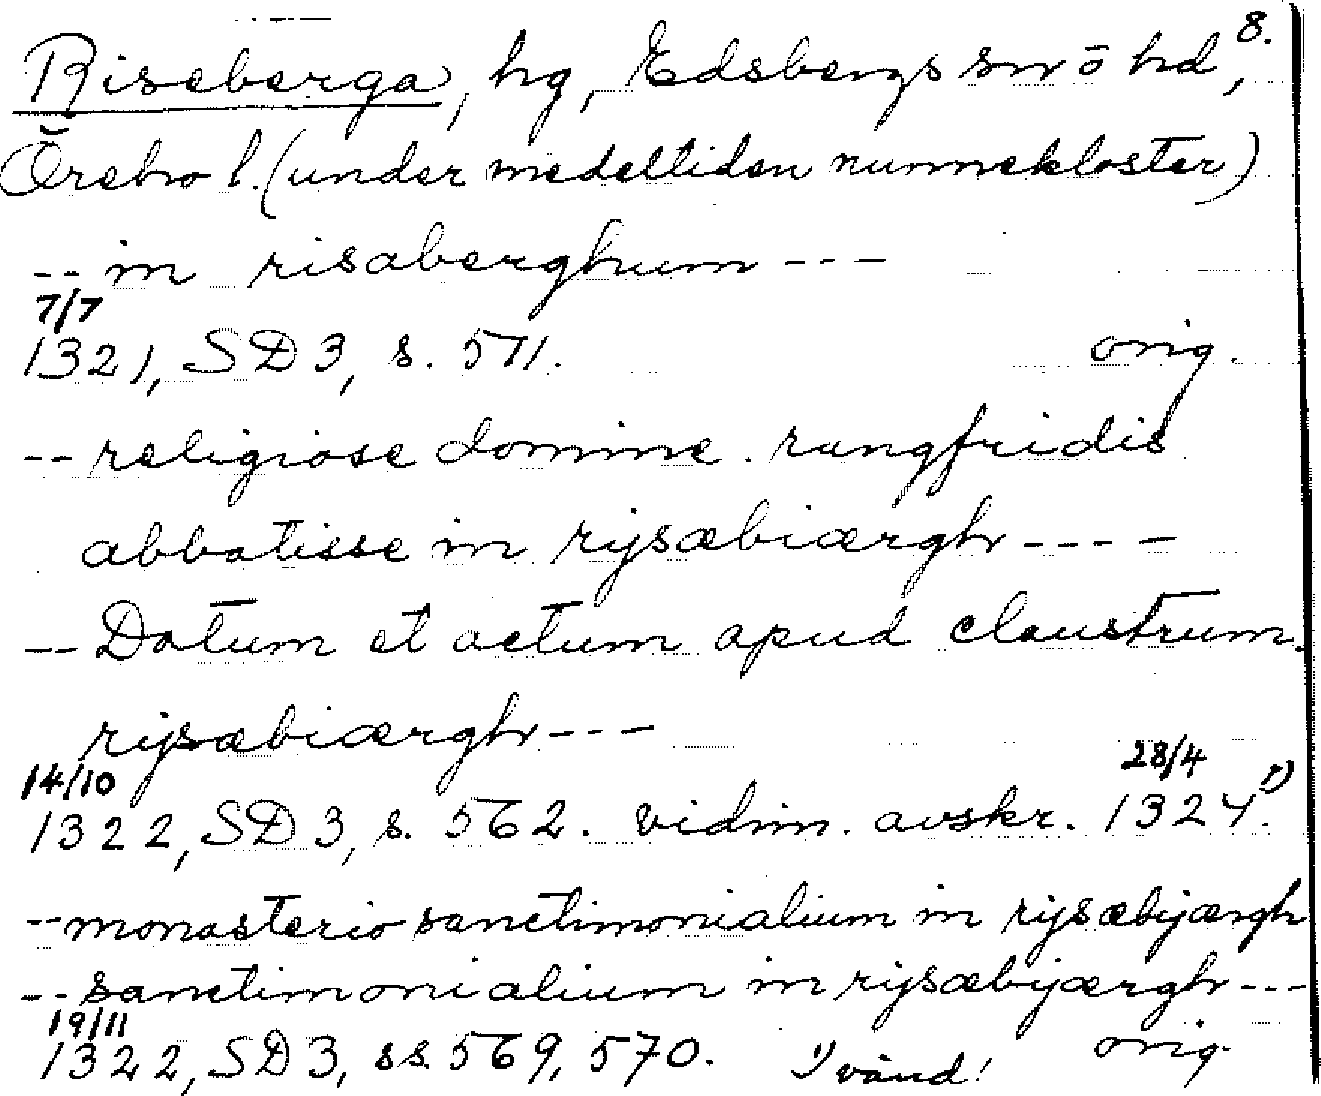 8.
Riseberga, hg, Edsbergs sn o hd,
Örebro l. (under medeltiden nunnekloster)
-- in risaberghum ---
7/7
1321, SD 3, s. 511. orig.
-- religiose domine rangfridis
abbatisse in rijsæbiærgh ----
-- Datum et actum apud claustrum
rijsæbiærgh ---
14/10 28/4
1322, SD 3, s. 562. vidim. avskr. 1324. 1)
-- monasterio sanctimonialium in rijsæbijærgh
-- sanctimonialium in rijsæbijærgh ---
19/11
1322, SD 3, ss. 569, 570. 1) vänd! orig.